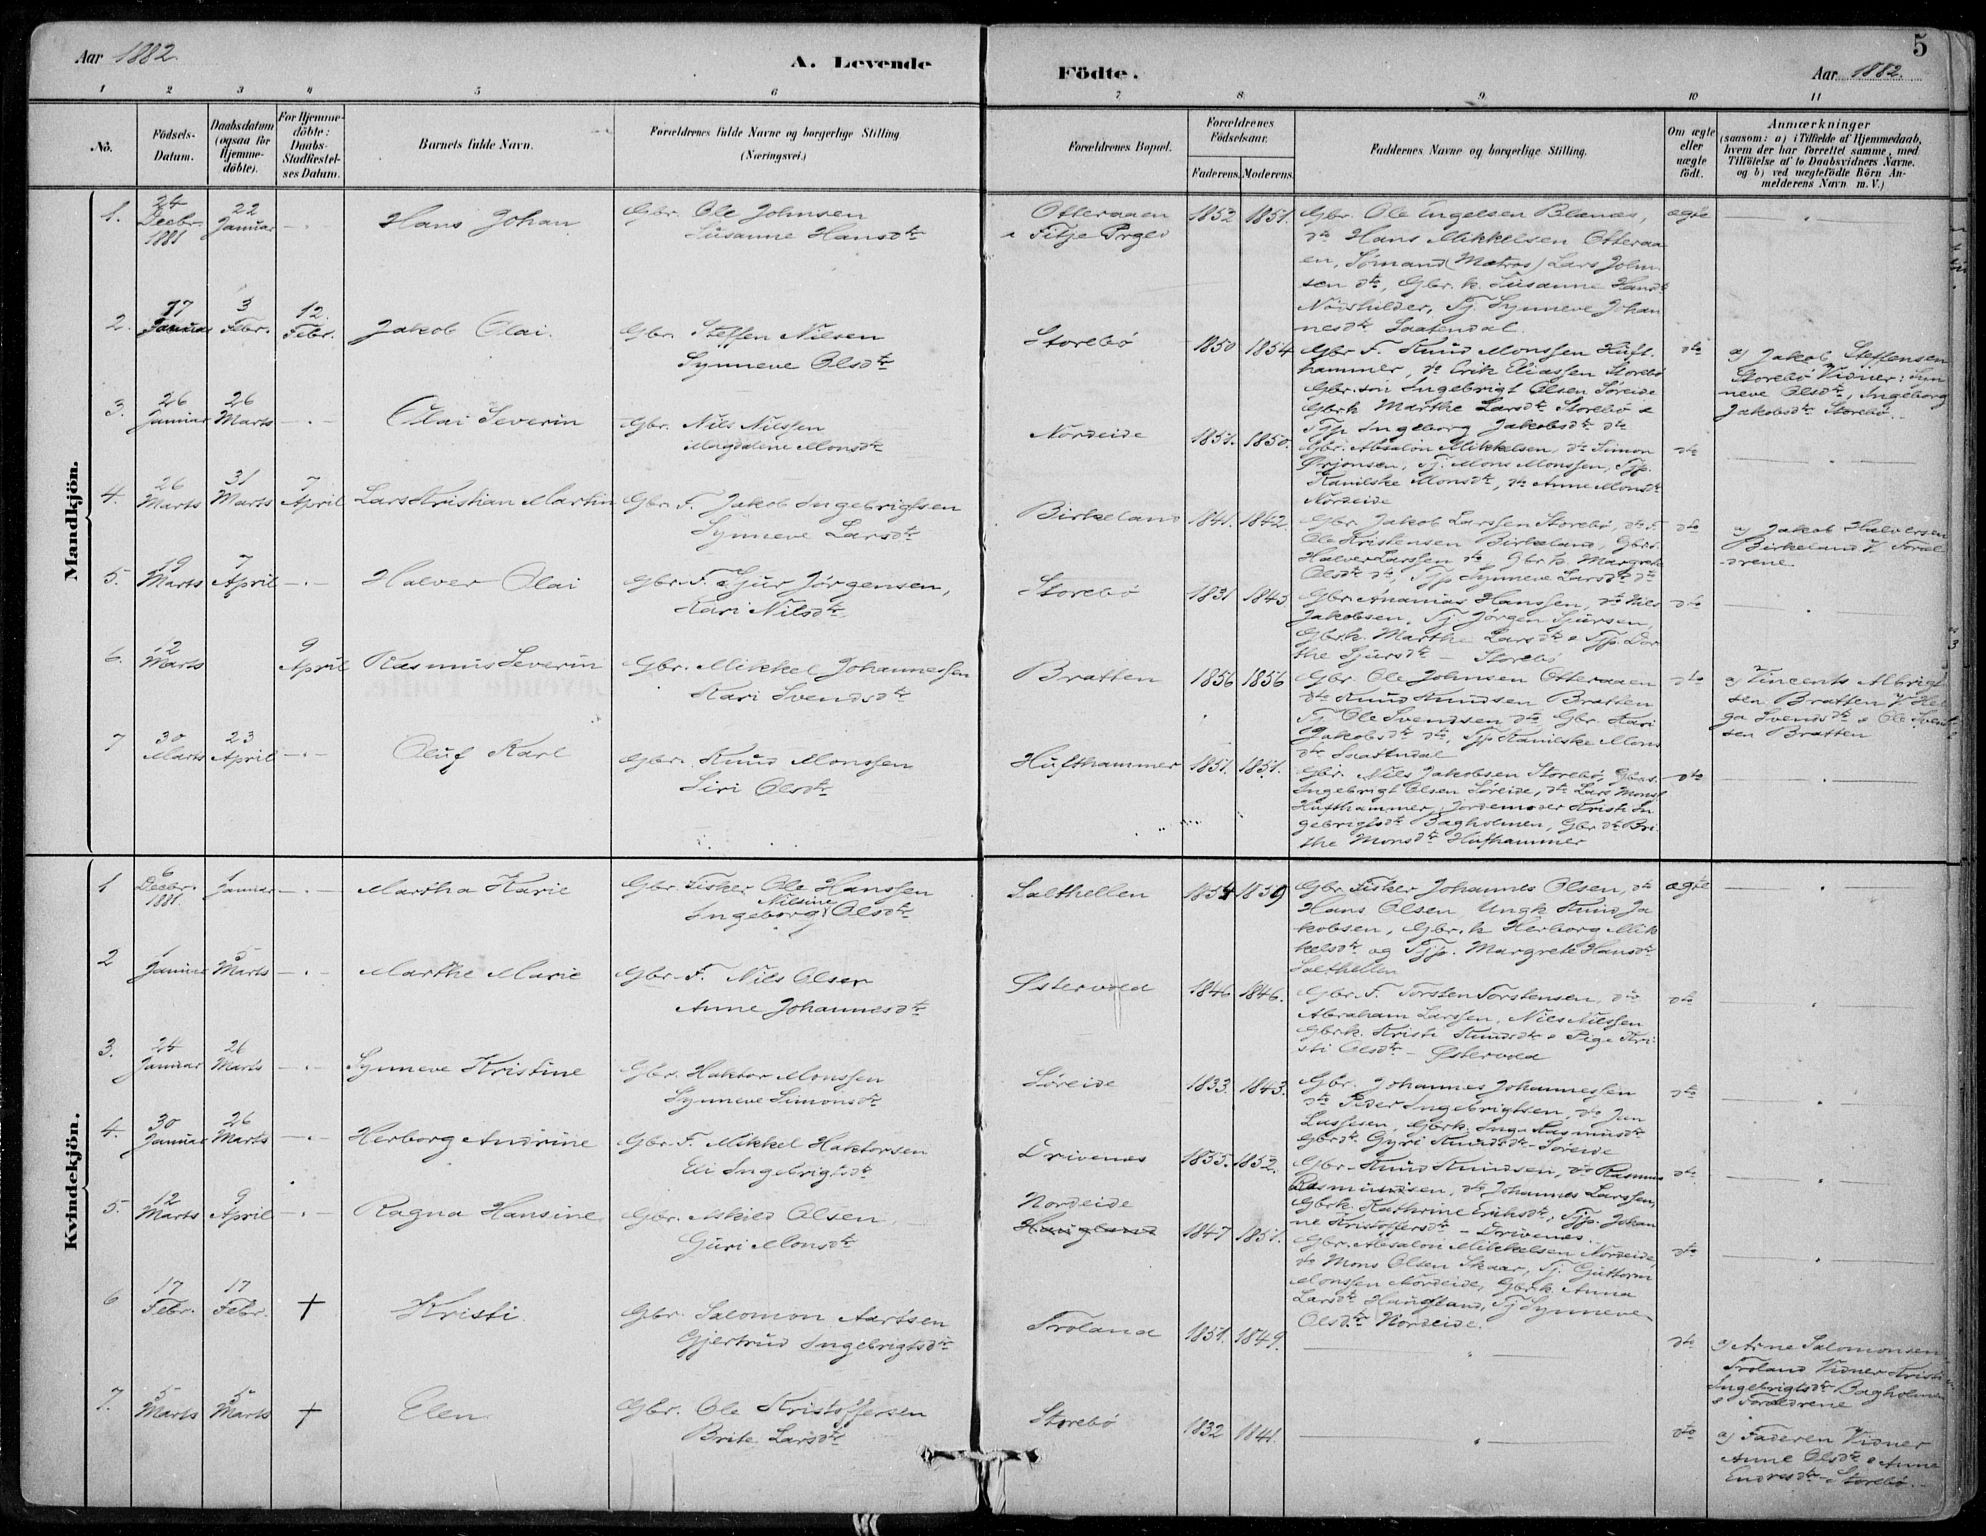 Aar 1882.
A. Levende
Födte.
Aar 1882.
5
1 2 3 4 5 6 7 8 9 10 11
No.
Födsels-
Datum.
Daabsdatum
(ogsaa for
Hjemme-
döbte).
For Hjemme-
döbte:
Daabs-
Stadfæstel-
ses Datum.
Barnets fulde Navn.
Forældrenes fulde Navne og borgerlige Stilling
(Næringsvei.)
Forældrenes Bopæl.
Forældrenes
Födselsaar.
Faderens. Moderens.
Faddernes Navne og borgerlige Stilling.
Om ægte
eller
uægte
födt.
Anmærkninger
(saasom: a) i Tilfælde af Hjemmedaab,
hvem der har forrettet samme, med
Tilföielse af to Daabsvidners Navne.
og b) ved uægtefödte Börn An-
melderens Navn m. V.)
Mandkjön.
1.
24
Decbr.
1881
22
Januar
Hans Johan
Gbr. Ole Johnsen
Susanne Hansdtr
Otteraaen
Fitje Prgld
1852 1851.
Gbr. Ole Engelsen Blænæs,
dto Hans Mikkelsen Otteraa-
en, Sømand (Matros) Lars John-
sen dto, Gbr. k. Susanne Hansdtr
Tj. Synneve Johan
nesdtr Laatendal
ægte
2.
17
Januar
3
Febr.
12.
Febr.
Jakob Olai.
Gbr. Steffen Nilsen
Synneve Olsdtr
Storebø
1850 1854
Gbr. F. Knud Monssen Huft-
hammer, do Erik Eliassen Storebø
Gbr. søn Ingebrigt Olsen Søreide
Gbrk. Marthe Larsdtr Storebø &
Tjp Ingeborg Jakobsdtr dto
dto
a) Jakob Steffensen
Storebø Vidner: Syn
neve Olsdtr, Ingeborg
Jakobsdtr Storebø.
3.
26
Januar
26
Marts
Olai Severin
Gbr. Nils Nilssen
Magdalene Monsdtr
Nordeide
1851. 1850.
Gbr. Absalon Mikkelsen, dto Simon
Ørjansen, Tj. Mons Monssen, Tjp.
Kanilske Monsdtr, dto Anne Monsdtr
Nordeide
dto
4.
26
Marts
31
Marts
7
April
Lars Kristian Martin
Gbr. F. Jakob Ingebrigtsen
Synneve Larsdtr
Birkeland
1841. 1842.
Gbr. Jakob Larssen Storebø, dto F.
Ole Kristensen Birkeland, Gbrs.
Halver Larssen dto Gbr. k. Margrete
Olsdtr dto, Tjp Synneve Larsdtr dto
dto
a) Jakob Halversen
Birkeland V. Foræl
drene
5.
19
Marts
7
April
Halver Olai
Gbr. F. Sjur Jørgensen,
Kari Nilsdtr
Storebø
1831 1843
Gbr. Ananias Hanssen, dto Nils
Jakobsen, Tj Jørgen Sjursen,
Gbrk. Marthe Larsdtr & Tjp. Dor
the Sjursdtr - Storebø
dto
6.
12
Marts
9
April
Rasmus Severin
Gbr. Mikkel Johannessen
Kari Svendsdtr
Bratten
1856 1856
Gbr. Ole Johnsen Otteraaen
dto Knud Knudsen Bratten
Tj Ole Svendsen dto Gbr. Kari
Jakobsdtr dto, Tjp Kanilske Mons
dtr
dto
a) Vincents Albrigt
sen Bratten V. Hel
ga Svendsdtr & Ole Svend
sen Bratten
7
30
Marts
23
April
Oluf Karl
Gbr. Knud Monssen
Siri Olsdtr
Hufthammer
1851. 1851.
Gbr. Nils Jakobsen Storebø, Gbrs.
Ingebrigt Olsen Søreide, dto Lars Monss
Hufthammer, Jordemoder Kristi In
gebrigtsdtr Bagholmen, Gbr. dtr Bri-
the Monsdtr Hufthammer
dto
Kvindekjön.
1
6
Decbr.
1881.
1
Januar
Martha Karie
Gbr. Fisker Ole Hanssen
Nilsine
Ingeborg Olsdtr
Salthellen
1854 1859
Gbr. Fisker Johannes Olsen, dto
Hans Olsen, Ungk Knud Ja
kobsen, Gbr. k Herborg Mik
kelsdtr og Tjp. Margrete Hansdtr
Salthellen
ægte
2
1
Januar
5
Marts
Marthe Marie
Gbr. F. Nils Olsen
Anne Johannesdtr
Østervold
1846 1846.
Gbr. F. Torsten Torstensen, dto
Abraham Larssen, Nils Nilssen
Gbrk. Kristi Knudsdtr & Pige Kri-
sti Olsdtr - Østervold
dto
3.
24
Januar
26
Marts
Synneve Kristine
Gbr. Haktor Monssen
Synneve Simonsdtr
Søreide
1833. 1843.
Gbr. Johannes Johannessen
dto Peder Ingebrigtsen, dto Jan
Lassesen, Gbrk. Inga Rasmusdtr
Gbrdtr. Gyri Knudsdtr - Søreide
dto
4.
30
Januar
26
Marts
Herborg Andrine
Gbr. F. Mikkel Haktorsen
Eli Ingebrigtsdtr
Drivenes
1855. 1852.
Gbr. Knud Knudsen, dto Rasmus
Rasmussen, dto Johannes Larssen,
Gbrk Kathrine Eriksdtr, Tjp. Johan
ne Kristoffersdtr - Drivenes
dto
5.
12
Marts
9
April
Ragna Hansine
Gbr. Askild Olsen
Guri Monsdtr
Nordeide
Haugland
1847 1851.
Gbr. Absalon Mikkelsen Nordeide,
dto Mons Olsen Skaar, Tj. Guttorm
Monssen Nordeide, Gbrk. Anna
Larsdtr Haugland, Tj Synneve
Olsdtr Nordeide.
dto
6
17
Febr.
17
Febr.
+
Kristi
Gbr. Salomon Aartsen
Gjertrud Ingebrigtsdtr
Troland
1851. 1849.
dto
a) Arne Salomonsen
Troland Vidner Kristi
Ingebrigtsdtr Bagholmen
& Forældrene
7.
5
Marts
5
Marts
+
Elen
Gbr. Ole Kristoffersen
Brite Larsdtr
Storebø
1832 1841.
dto
a) Faderen Vidner
Anne Olsdtr & Anne
Endresdtr - Storebø.